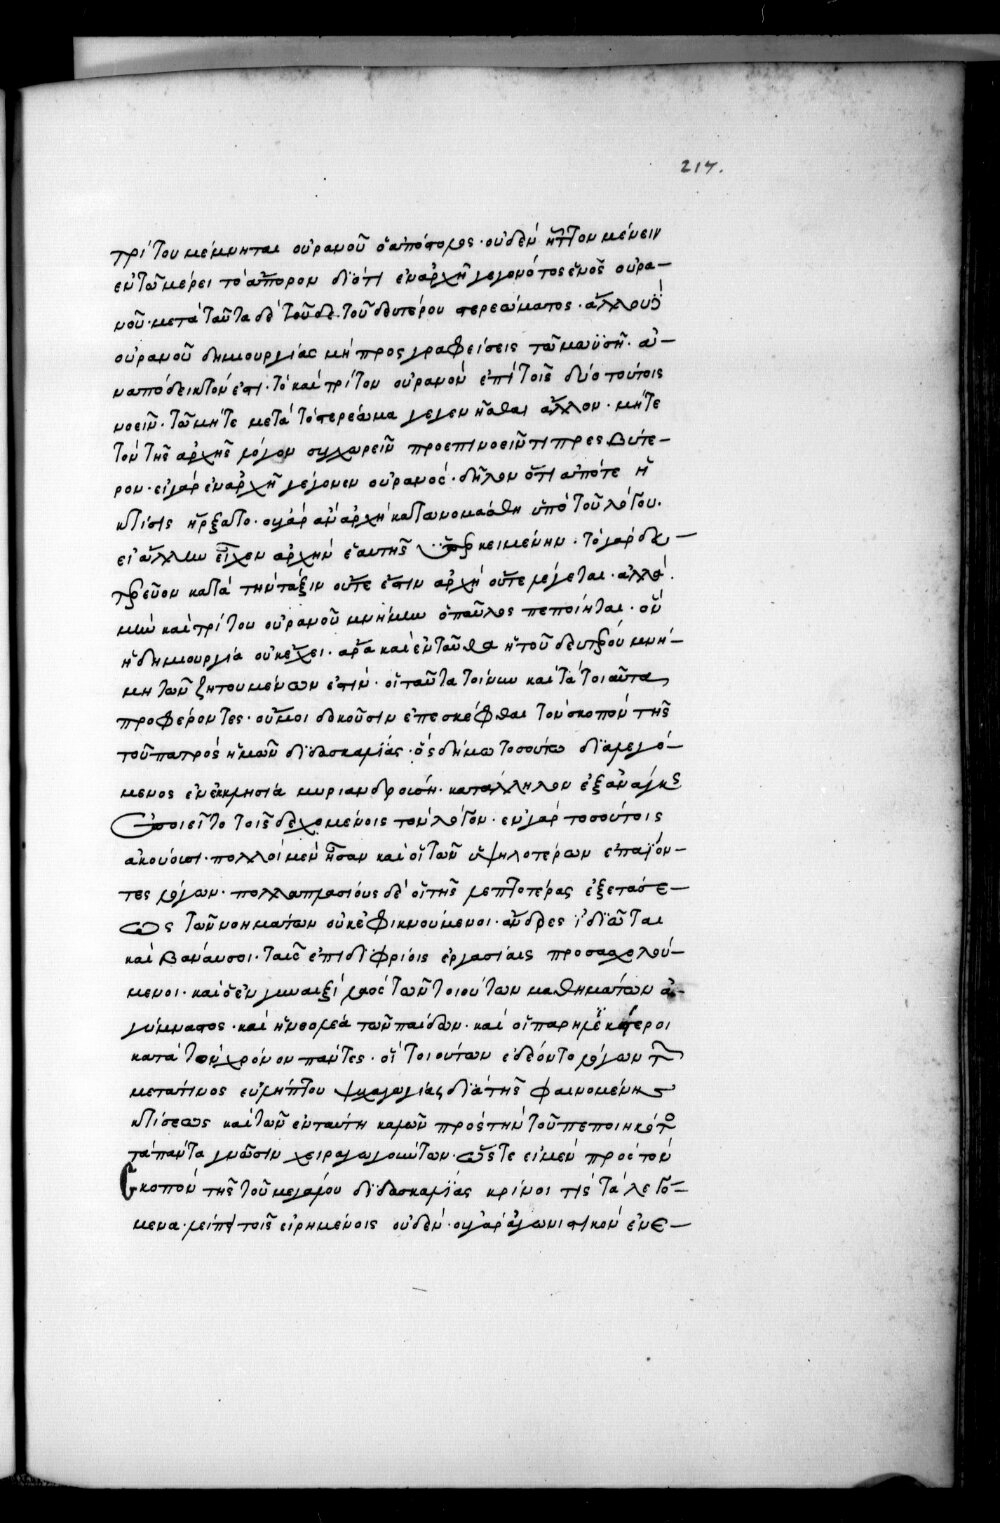 217.
τρίτου μέμνηται οὐρανοῦ ὁ ἀπόστολος· οὐδὲν ἧττον μένειν
ἐν τῷ μέρει τὸ ἄπορον διότι ἐν ἀρχῆ γεγονότος ἑνὸς οὐρα-
νοῦ· μετὰ ταῦτα δὲ τοῦδε τοῦ δευτέρου στερεώματος· ἄλλου
οὐρανοῦ δημιουργίας μὴ προσγραφείσεις τῶ μωϋσῆ· ἀ-
ναπόδεικτόν ἐστι· τὸ καὶ τρίτον οὐρανὸν ἐπὶ τοῖς δύο τούτοις
νοεῖν· τῶ μήτε μετὰ τὸ στερέωμα γεγενῆσθαι ἄλλον· μήτε
τὸν τῆς ἀρχῆς λόγον συγχωρεῖν προεπινοεῖν τι πρεσβύτε-
ρον· εἰ γὰρ ἐν ἀρχῆ γέγονεν οὐρανός· δῆλον ὅτι ἀπό τε ἡ
κτίσις ἤρξατο· οὐ γὰρ ἂν ἀρχὴ κατωνομάσθη ὑπὸ τοῦ λόγου·
εἰ ἄλλην εἶχεν ἀρχὴν ἑαυτῆς ὑπερκειμένην· τὸ γὰρ δευ-
τερεῦον κατὰ τὴν τάξιν οὔτε ἐστιν ἀρχὴ οὔτε λέγεται· ἀλλὰ
μὴν καὶ τρίτου οὐρανοῦ μνήμην ὁ παῦλος πεποίηται· ὃν
ἡ δημιουργία οὐκ ἔχει· ἄρα καὶ ἐνταῦθα ἡ τοῦ δευτέρου μνή-
μη τῶν ζητουμένων ἐστίν· οἱ ταῦτα τοίνυν καὶ τὰ τοιαῦτα
προφέροντες· οὔ μοι δοκοῦσιν ἐπεσκέφθαι τὸν σκοπὸν τῆς
τοῦ πατρὸς ἡμῶν διδασκαλίας· ὃς δήμω τοσούτω διαλεγό-
μενος ἐν ἐκκλησία μυριάνδρω· κατάλληλον ἐξ ἀνάγκης
ἐποιεῖτο τοῖς δεχομένοις τὸν λόγον· ἐν γὰρ τοσούτοις
ἀκούουσι· πολλοὶ μὲν ἦσαν καὶ οἱ τῶν ὑψηλοτέρων ἐπαΐον-
τες λόγων· πολλαπλασίους δὲ οἱ τῆς λεπτοτέρας ἐξετάσε-
ως τῶν νοημάτων οὐκ ἐφικνούμενοι· ἄνδρες ἰδιῶται
καὶ βάναυσοι· ταῖς ἐπιδιφρίοις ἐργασίαις προσασχολού-
μενοι· καὶ ὁ ἐν γυναιξὶ λαὸς τῶν τοιούτων μαθημάτων ἀ-
γύμναστος· καὶ ἡ νεολαία τῶν παίδων· καὶ οἱ παρηλικέστεροι
κατὰ τὸν χρόνον πάντες· οἱ τοιούτων ἐδέοντο λόγων τῶν
μετά τινος εὐλήπτου ψυχαγωγίας διὰ τῆς φαινομένης
κτίσεως καὶ τῶν ἐν ταύτη καλῶν πρὸς τὴν τοῦ πεποιηκότος
τὰ πάντα γνῶσιν χειραγωγούντων· ὥστε εἰ μὲν πρὸς τὸν
σκοπὸν τῆς τοῦ μεγάλου διδασκαλίας κρίνοι τις τὰ λεγό-
μενα· λείπει τοῖς εἰρημένοις οὐδέν· οὐ γὰρ ἀγωνιστικὸν ἐνε-